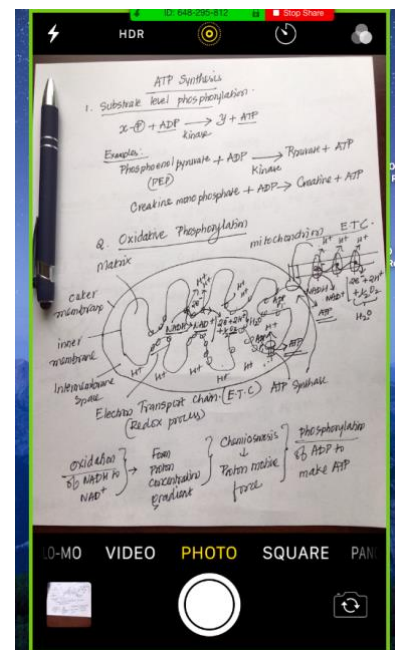 ID: 648-295-812 Stop Share
HDR
ATP Synthesis
1. Substrate level phosphorylation.
x-P + ADP → y + ATP
kinase
Examples:
Phosphoenol pyruvate + ADP → Pyruvate + ATP
(PEP) kinase
Creatine monophosphate + ADP → Creatine + ATP
2. Oxidative Phosphorylation
mitochondrion E.T.C.
matrix
H+ H+ H+
outer
membrane
NADH → NAD+
2E- + 2H+
H2O
inner
membrane
Intermembrane
Space
H+ H+ H+
ATP Synthase
Electron Transport chain. (E.T.C)
(Redox process)
oxidation
of NADH to
NAD+
Form
Proton
Concentration
gradient
Chemiosmosis
↓
Proton motive
force
phosphorylation
of ADP to
make ATP
LO-MO VIDEO PHOTO SQUARE PAN